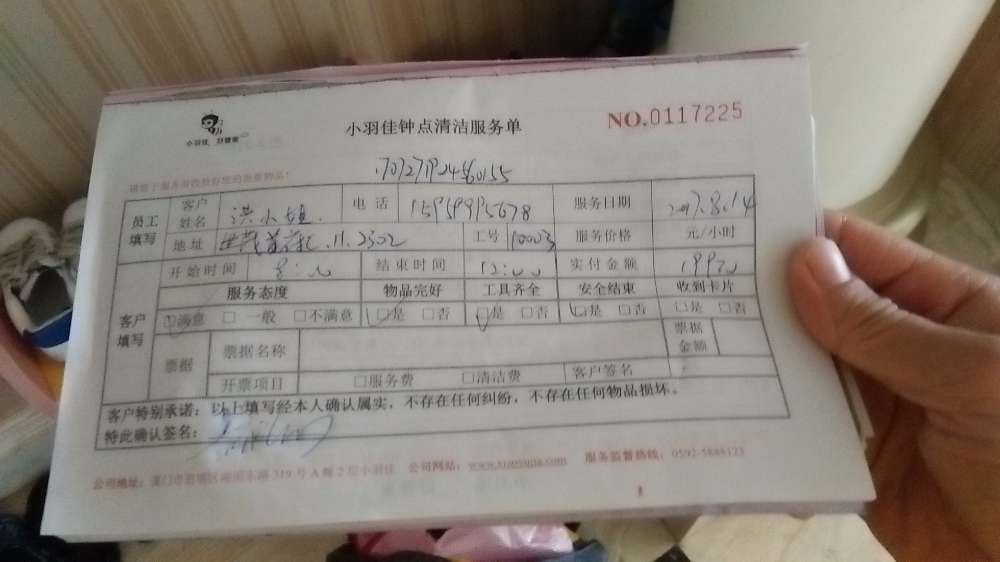 小羽佳 好管家
小羽佳钟点清洁服务单
NO.0117225
员工填写 客户姓名 电话 15959995678 服务日期 2017.8.14
地址 11.2302 工号 10003 服务价格 元/小时
开始时间 8:00 结束时间 12:00 实付金额
客户填写 服务态度 物品完好 工具齐全 安全结束 收到卡片
☑满意 □一般 □不满意 ☑是 □否 ☑是 □否 ☑是 □否 □是 □否
票据 票据名称 票据金额
开票项目 □服务费 □清洁费 客户签名
客户特别承诺：以上填写经本人确认属实，不存在任何纠纷，不存在任何物品损坏。
特此确认签名：
公司地址：厦门市思明区湖滨东路319号A幢2层小羽佳 公司网站： 服务监督热线：0592-5888123